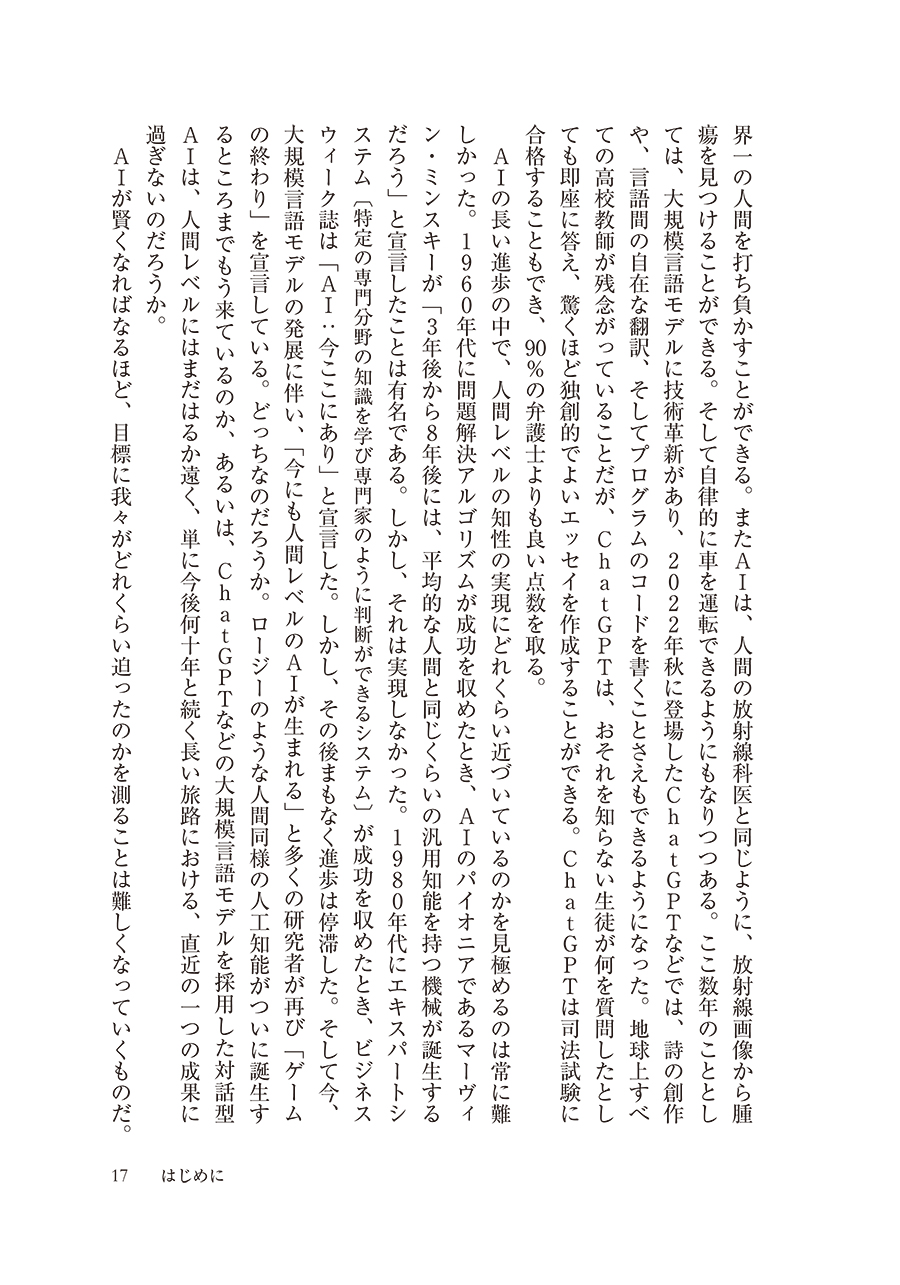 界一の人間を打ち負かすことができる。またＡＩは、人間の放射線科医と同じように、放射線画像から腫
瘍を見つけることができる。そして自律的に車を運転できるようにもなりつつある。ここ数年のこととし
ては、大規模言語モデルに技術革新があり、２０２２年秋に登場したＣｈａｔＧＰＴなどでは、詩の創作
や、言語間の自在な翻訳、そしてプログラムのコードを書くことさえもできるようになった。地球上すべ
ての高校教師が残念がっていることだが、ＣｈａｔＧＰＴは、おそれを知らない生徒が何を質問したとし
ても即座に答え、驚くほど独創的でよいエッセイを作成することができる。ＣｈａｔＧＰＴは司法試験に
合格することもでき、90％の弁護士よりも良い点数を取る。
　ＡＩの長い進歩の中で、人間レベルの知性の実現にどれくらい近づいているのかを見極めるのは常に難
しかった。１９６０年代に問題解決アルゴリズムが成功を収めたとき、ＡＩのパイオニアであるマーヴィ
ン・ミンスキーが「３年後から８年後には、平均的な人間と同じくらいの汎用知能を持つ機械が誕生する
だろう」と宣言したことは有名である。しかし、それは実現しなかった。１９８０年代にエキスパートシ
ステム〔特定の専門分野の知識を学び専門家のように判断ができるシステム〕が成功を収めたとき、ビジネス
ウィーク誌は「ＡＩ：今ここにあり」と宣言した。しかし、その後まもなく進歩は停滞した。そして今、
大規模言語モデルの発展に伴い、「今にも人間レベルのＡＩが生まれる」と多くの研究者が再び「ゲーム
の終わり」を宣言している。どっちなのだろうか。ロージーのような人間同様の人工知能がついに誕生す
るところまでもう来ているのか、あるいは、ＣｈａｔＧＰＴなどの大規模言語モデルを採用した対話型
ＡＩは、人間レベルにはまだはるか遠く、単に今後何十年と続く長い旅路における、直近の一つの成果に
過ぎないのだろうか。
　ＡＩが賢くなればなるほど、目標に我々がどれくらい迫ったのかを測ることは難しくなっていくものだ。
17　はじめに